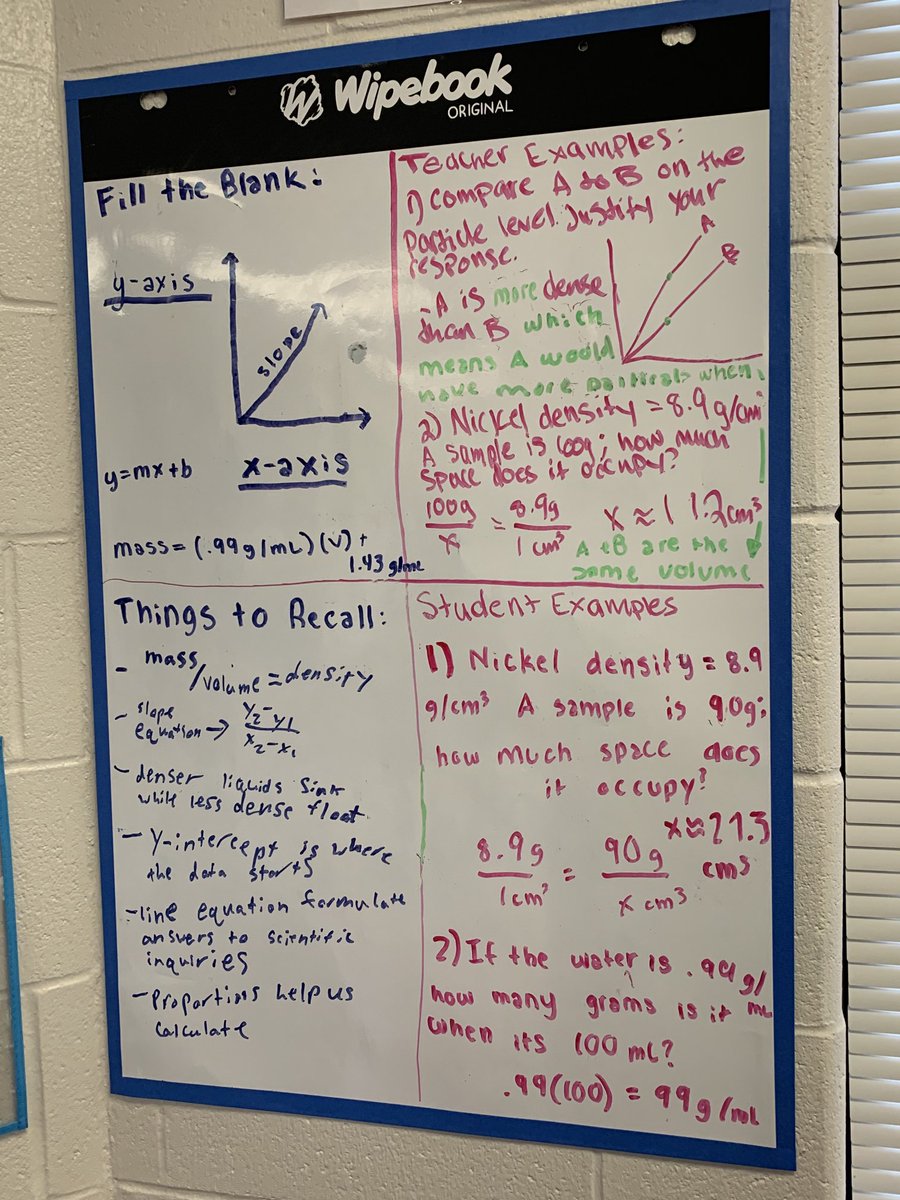 Wipebook
ORIGINAL
Fill the Blank:
y-axis
slope
y=mx+b
x-axis
mass = (.99g/mL)(V) +
1.43 g/mL
Teacher Examples:
1) Compare A to B on the
particle level. Justify your
response.
A
B
- A is more dense
than B which
means A would
have more particals when
2) Nickel density = 8.9g/cm³
A sample is 100g; how much
space does it occupy?
100g/x = 8.9g/1cm³ x ≈ 11.2cm³
A & B are the
same volume
Things to Recall:
- mass/volume = density
- slope
equation → y₂-y₁/x₂-x₁
- denser liquids sink
while less dense float
- Y-intercept is where
the data starts
- line equation formulate
answers to scientific
inquiries
- Proportions help us
calculate
Student Examples
1) Nickel density = 8.9
g/cm³ A sample is 90g;
how much space does
it occupy?
8.9g/1cm³ = 90g/x cm³
cm³
2) If the water is .99 g/mL
how many grams is it
when its 100 mL?
.99(100) = 99g/mL